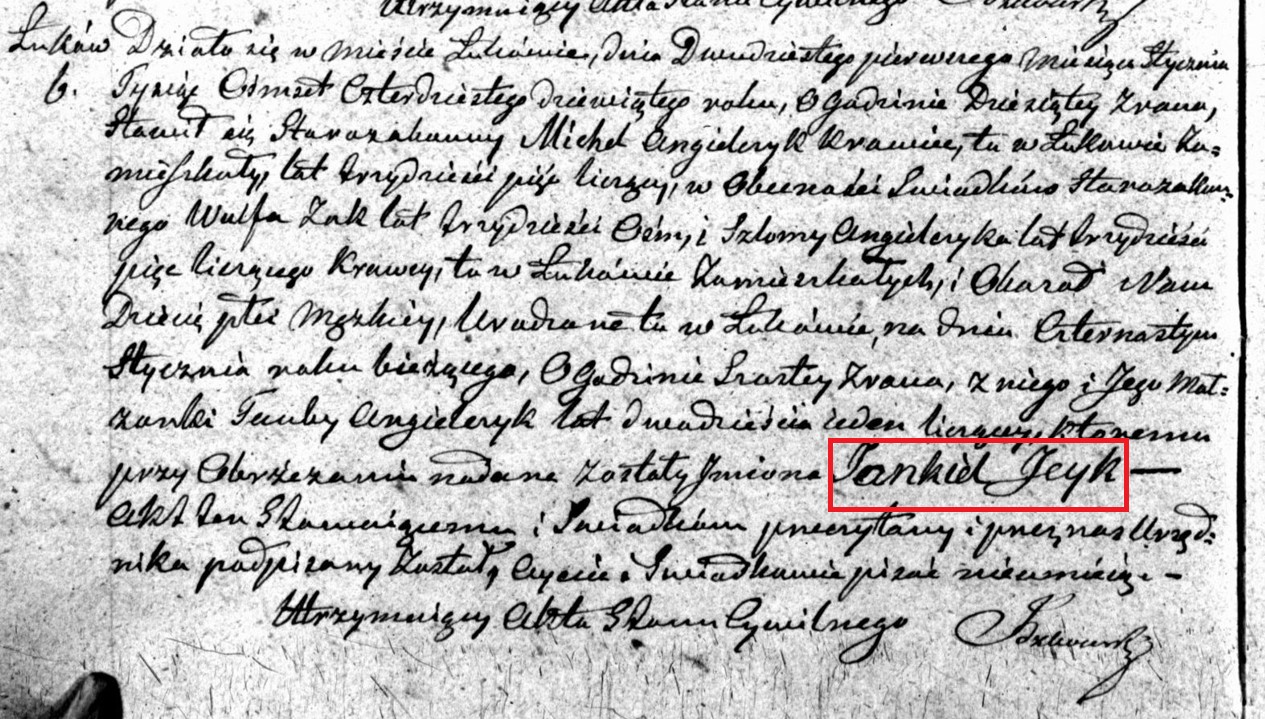 Utrzymuiący Akta Stanu Cywilnego
Łuków Działo się w mieście Łukowie, dnia Dwudziestego pierwszego miesiąca Stycznia
6. Tysiąc Ośmset Czterdziestego dziewiątego roku, o Godzinie Dziesiątey Zrana,
Stawił się Starozakonny Michel Angielczyk Krawiec, tu w Łukowie Za=
mieszkały, lat trzydzieści pięc liczący, w Obecności Swiadków Starozakon=
nego Wulfa Żak lat trzydzieści Ośm, i Szlomy Angielczyka lat trzydzieści
pięc liczącego Krawcy, tu w Łukowie Zamieszkałych, i Okazał Nam
Dziecię płci Męzkiey, Urodzone tu w Łukowie, na dniu Czternastym
Stycznia roku bieżącego, O Godzinie Szostey Zrana, z niego i Jego Mał=
żonki Tauby Angielczyk lat dwadzieścia ieden liczącey, któremu
przy Obrzezaniu nadane Zostały Jmiona Jankiel Jcyk —
Akt ten Stawaiącemu i Swiadkom przeczytany i przez nas Urzęd=
nika podpisany Został, Oyciec i Swiadkowie pisać nieumieią. –
Utrzymuiący Akta Stanu Cywilnego